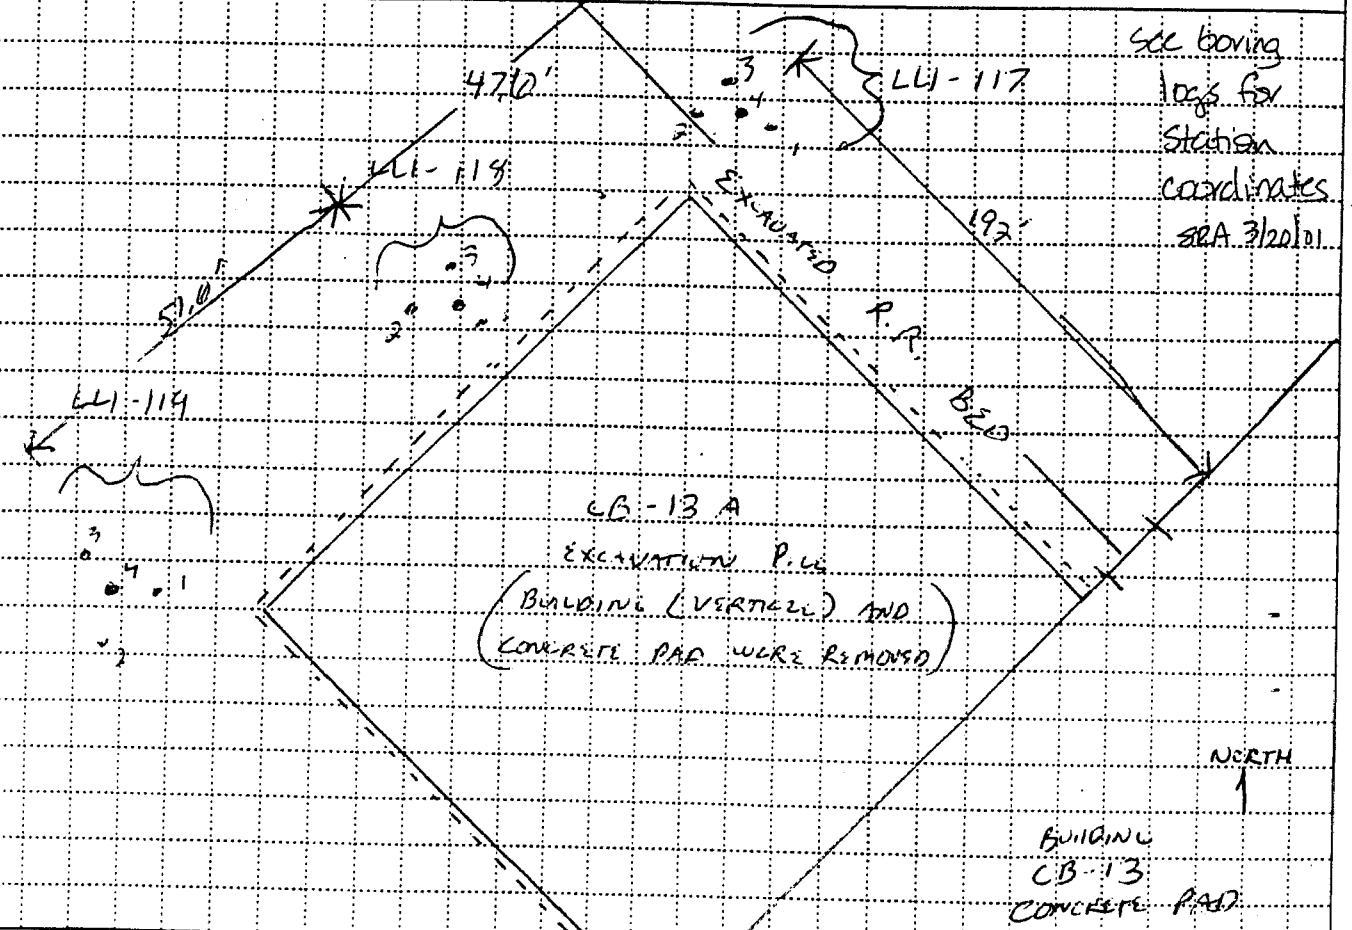 See boring
logs for
Station
coordinates
SRA 3/20/01
LL1-117
3
4
1
47.0'
LL1-118
3
4
2
1
51.0'
192'
EXCAVATED
P.R.
BED
LL1-119
3
4
1
2
CB-13 A
EXCAVATION
(BUILDING (VERTICLE) AND
CONCRETE PAD WERE REMOVED)
NORTH
BUILDING
CB-13
CONCRETE PAD